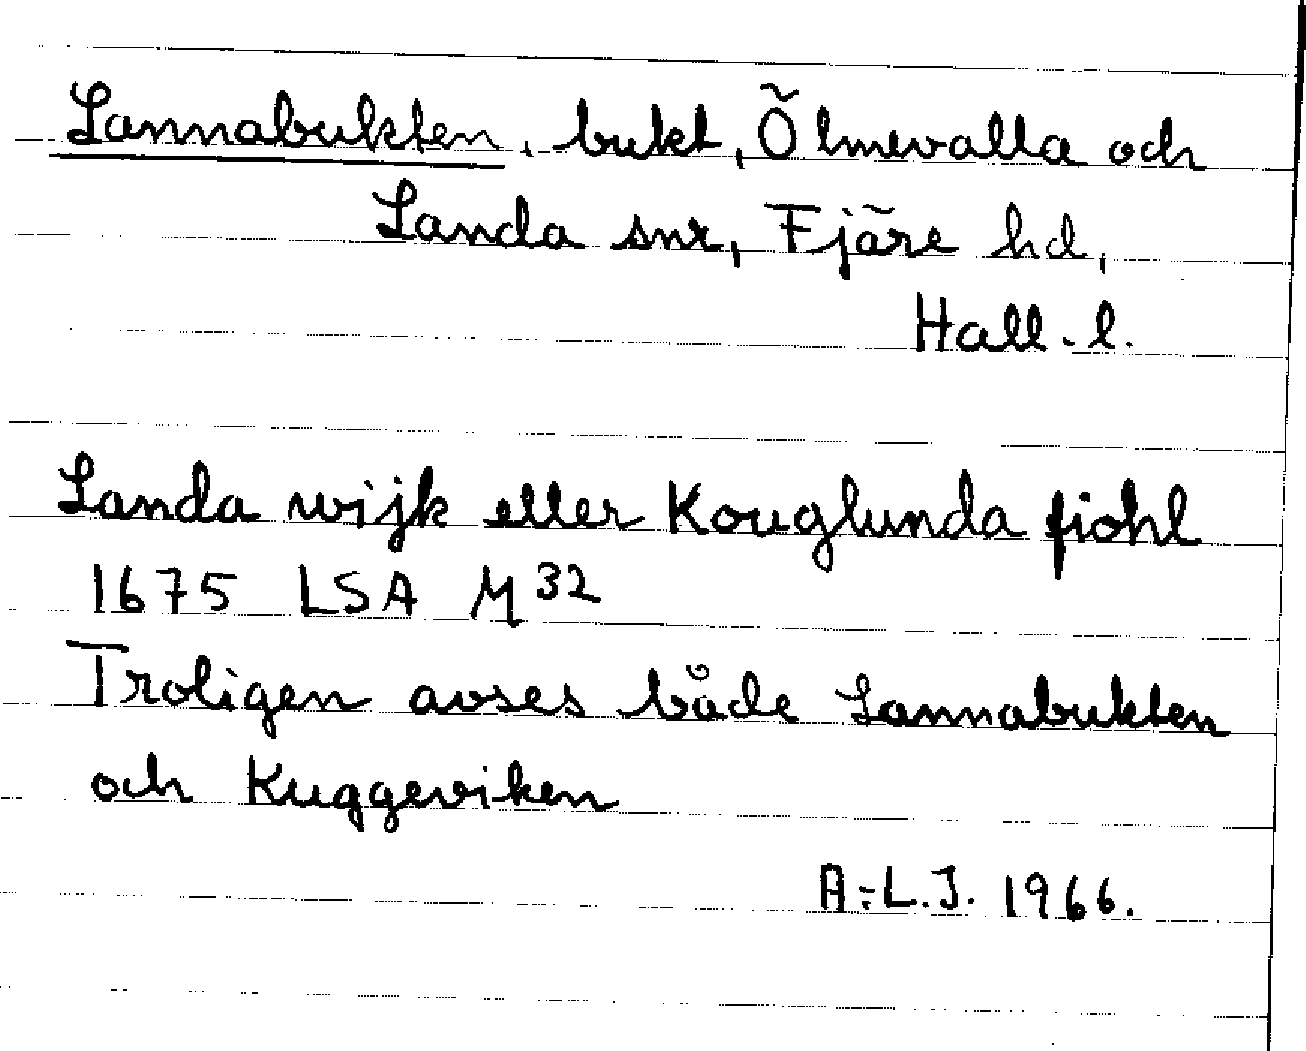 Lannabukten, bukt, Õlmevalla och
Landa snr, Fjãre hd,
Hall. l.
Landa wijk eller Kouglunda fiohl
1675 LSA M 32
Troligen avses både Lannabukten
och Kuggeviken
A.-L.J. 1966.